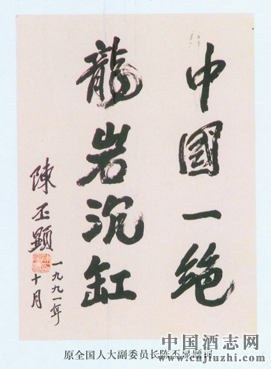 中國一绝
龍岩沉缸
陳丕顯
一九九一年
十月
原全国人大副委员长陈丕显题词
中国酒志网
www.cnjiuzhi.com